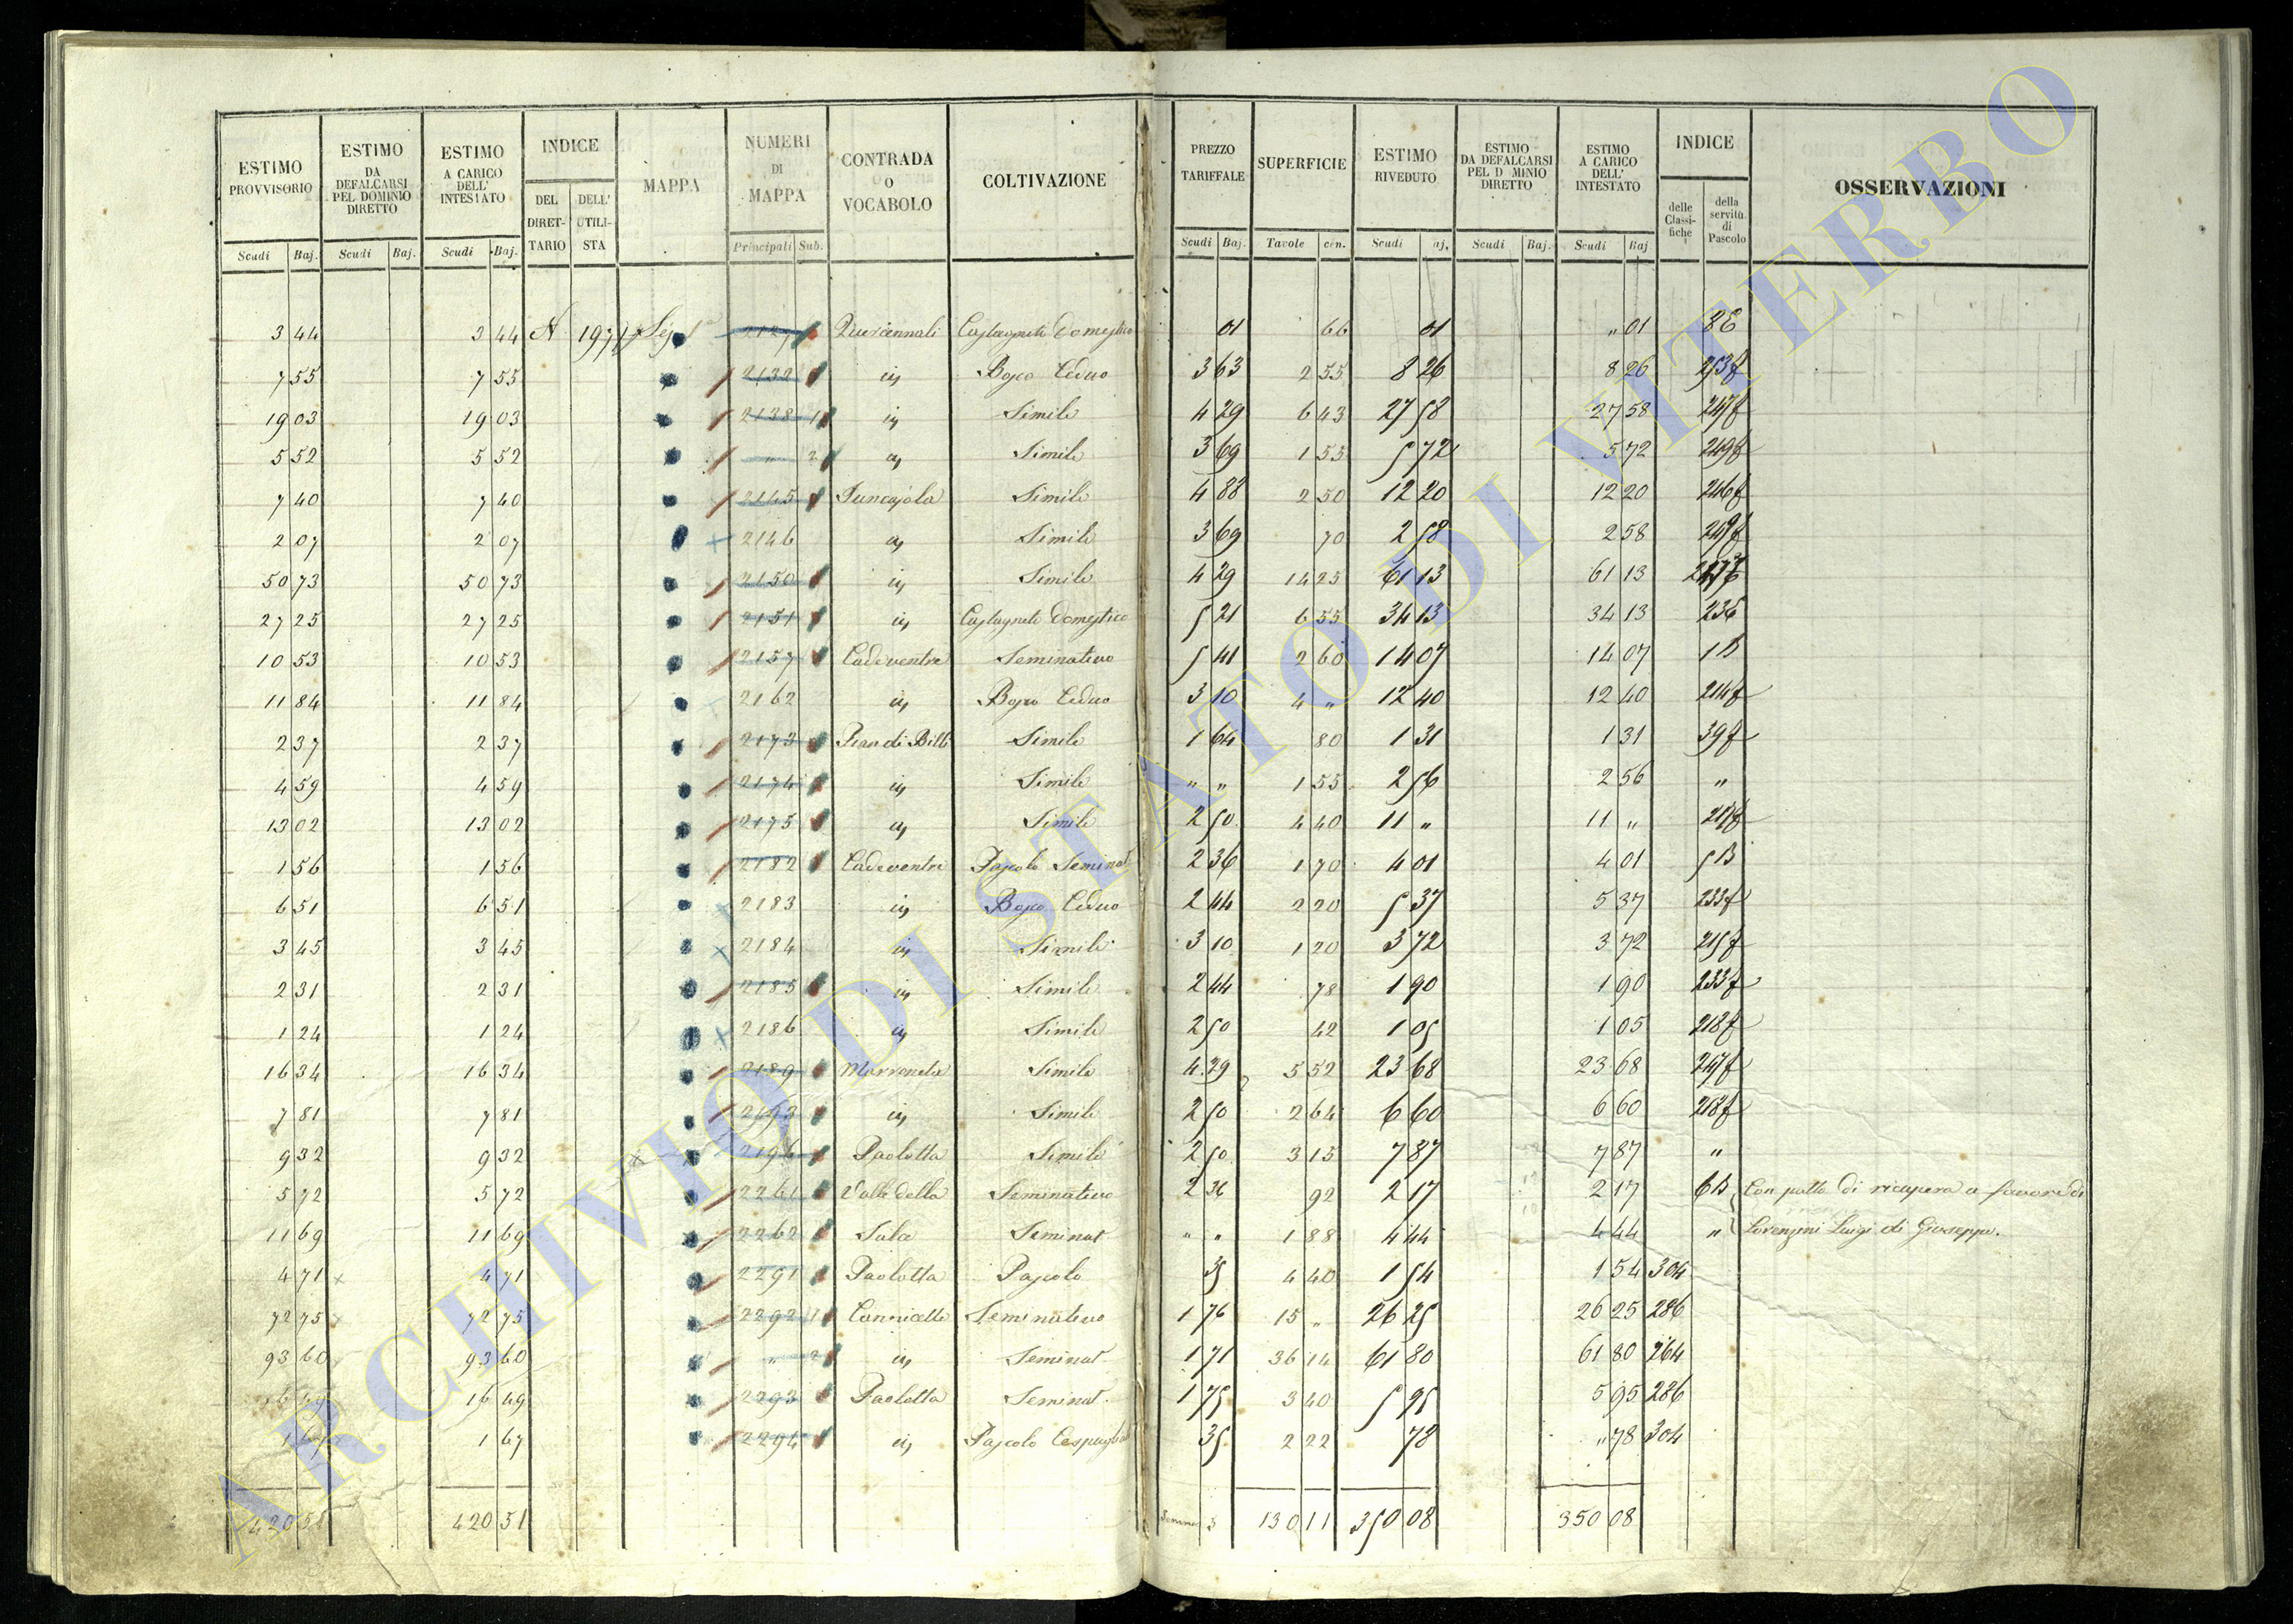 ESTIMO PROVVISORIO Scudi Baj. | ESTIMO DA DEFALCARSI PEL DOMINIO DIRETTO Scudi Baj. | ESTIMO A CARICO DELL' INTESTATO Scudi Baj. | INDICE DEL DIRETTARIO | DELL' UTILISTA | MAPPA | NUMERI DI MAPPA Principali Sub. | CONTRADA O VOCABOLO | COLTIVAZIONE | PREZZO TARIFFALE Scudi Baj. | SUPERFICIE Tavole cen. | ESTIMO RIVEDUTO Scudi aj. | ESTIMO DA DEFALCARSI PEL D MINIO DIRETTO Scudi Baj. | ESTIMO A CARICO DELL' INTESTATO Scudi Baj | INDICE delle Classifiche | della servitù di Pascolo | OSSERVAZIONI
3 44 | 3 44 | 2127 | Castagneto Domestico | 01 | 66 | 01 | " 01 | 8E
7 55 | 7 55 | 2132 | is | Bosco Ceduo | 3 63 | 2 55 | 8 26 | 8 26 | 253f
19 03 | 19 03 | 2138 1 | is | Simile | 4 29 | 6 43 | 27 58 | 27 58 | 247f
5 52 | 5 52 | " 2 | is | Simile | 3 69 | 1 55 | 5 72 | 5 72 | 249f
7 40 | 7 40 | 2145 | Juncajola | Simile | 4 88 | 2 50 | 12 20 | 12 20 | 246f
2 07 | 2 07 | 2146 | is | Simile | 3 69 | 70 | 2 58 | 2 58 | 249f
50 73 | 50 73 | 2150 | is | Simile | 4 29 | 14 25 | 61 13 | 61 13 | 247f
27 25 | 27 25 | 2151 | is | Castagneto Domestico | 5 21 | 6 55 | 34 13 | 34 13 | 23E
10 53 | 10 53 | 2157 | Cadeventre | Seminativo | 5 41 | 2 60 | 14 07 | 14 07 | 1B
11 84 | 11 84 | 2162 | is | Bosco Ceduo | 3 10 | 4 " | 12 40 | 12 40 | 214f
2 37 | 2 37 | 2173 | Pian di Bill | Simile | 1 64 | 80 | 1 31 | 1 31 | 39f
4 59 | 4 59 | 2174 | is | Simile | " " | 1 55 | 2 56 | 2 56 | "
13 02 | 13 02 | 2175 | is | Simile | 2 50 | 4 40 | 11 " | 11 "
1 56 | 1 56 | 2182 | Cadeventre | Pascolo Seminat | 2 36 | 1 70 | 4 01 | 4 01 | 5B
6 51 | 6 51 | 2183 | is | Bosco Ceduo | 2 44 | 2 20 | 5 37 | 5 37 | 233f
3 45 | 3 45 | 2184 | is | Simile | 3 10 | 1 20 | 3 72 | 3 72 | 215f
2 31 | 2 31 | 2185 | is | Simile | 2 44 | 78 | 1 90 | 1 90 | 233f
1 24 | 1 24 | 2186 | is | Simile | 2 50 | 42 | 1 05 | 1 05 | 218f
16 34 | 16 34 | 2189 | Marroneta | Simile | 4 29 | 5 52 | 23 68 | 23 68 | 247f
7 81 | 7 81 | 2193 | is | Simile | 2 50 | 2 64 | 6 60 | 6 60 | 218f
9 32 | 9 32 | 2196 | Paolotta | Simile | 2 50 | 3 15 | 7 87 | 7 87 | "
5 72 | 5 72 | 2261 | Valle della | Seminativo | 2 36 | 92 | 2 17 | 2 17 | 6B | Con patto di ricupera a favore di
11 69 | 11 69 | 2262 | Sala | Seminat | " " | 1 88 | 4 44 | 4 44 | " | Lorenzini Luigi di Giuseppe.
4 71 | 4 71 | 2291 | Paolotta | Pascolo | 35 | 4 40 | 1 54 | 1 54 | 304
72 75 | 72 75 | 2292 1 | Cannicelle | Seminativo | 1 76 | 15 " | 26 25 | 26 25 | 286
93 60 | 93 60 | " 2 | is | Seminat | 1 71 | 36 14 | 61 80 | 61 80 | 264
16 49 | 16 49 | 2293 | Paolotta | Seminat. | 1 75 | 3 40 | 5 95 | 5 95 | 286
1 67 | 1 67 | 2294 | is | Pascolo Cespugliat | 35 | 2 22 | 78 | " 78 | 304
420 51 | 420 51 | 130 11 | 350 08 | 350 08
ARCHIVIO DI STATO DI VITERBO